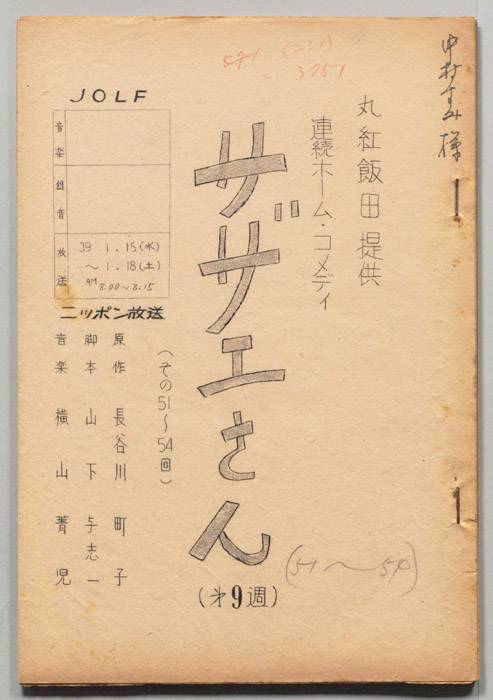 中村すみ様
丸紅飯田 提供
連続ホーム・コメディ
サザエさん
(才9週)
(51〜54)
(その51〜54回)
JOLF
音楽
録音
放送
39 1.15(水)
〜 1.18(土)
AM 8.00〜8.15
ニッポン放送
原作 長谷川 町子
脚本 山下 与志一
音楽 横山 菁児
3751